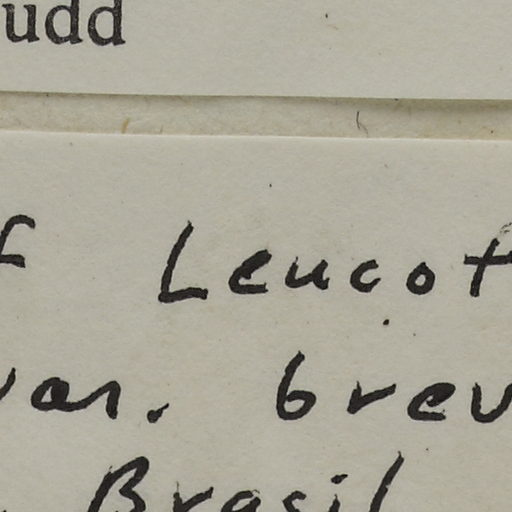 udd
f Leucot
var. brev
Brasil